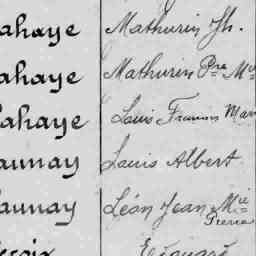 ahaye Mathurin Jh.
ahaye Mathurin Pre Mie
ahaye Louis Francis Marie
aunay Louis Albert
aunay Léon Jean Mie
Pierre
Edouard